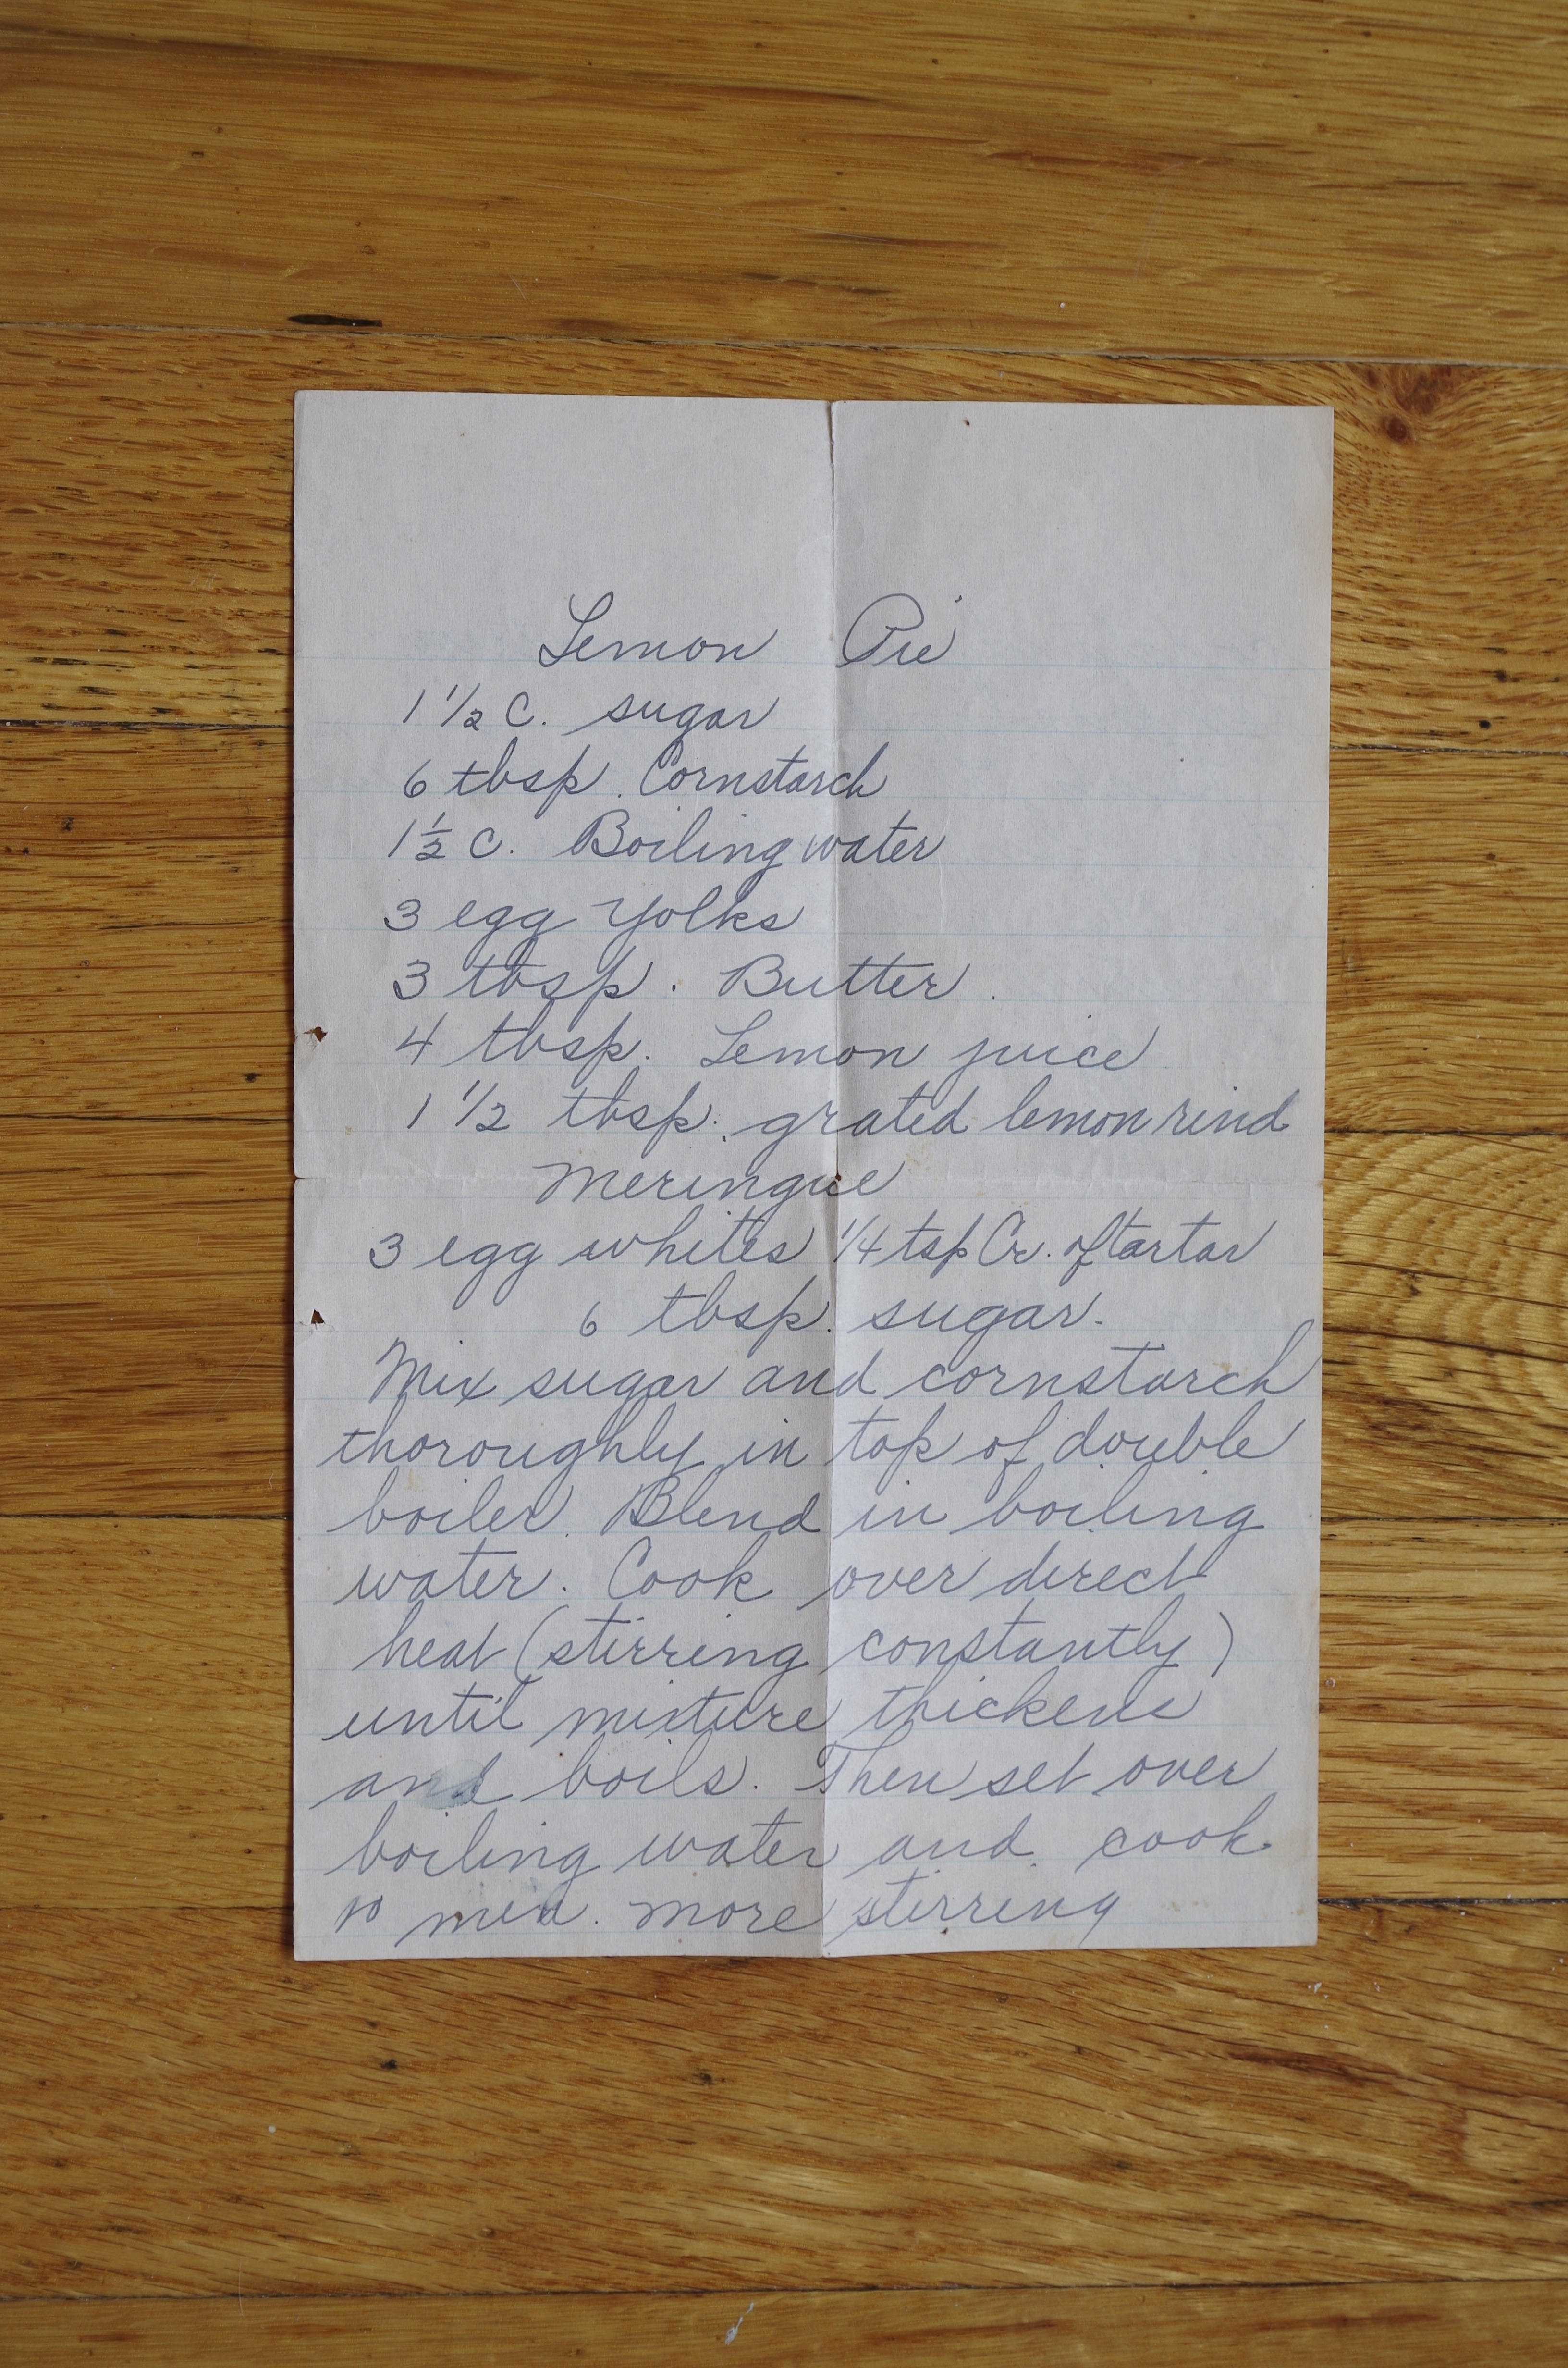 Lemon Pie
1 1/2 C. sugar
6 tbsp. Cornstarch
1 1/2 C. Boiling water
3 egg Yolks
3 tbsp. Butter.
4 tbsp. Lemon juice
1 1/2 tbsp. grated lemon rind
Meringue
3 egg whites 1/4 tsp Cr. of tartar
6 tbsp. sugar.
Mix sugar and cornstarch
thoroughly in top of double
boiler. Blend in boiling
water. Cook over direct
heat (stirring constantly)
until mixture thickens
and boils. Then set over
boiling water and cook
10 min. more stirring